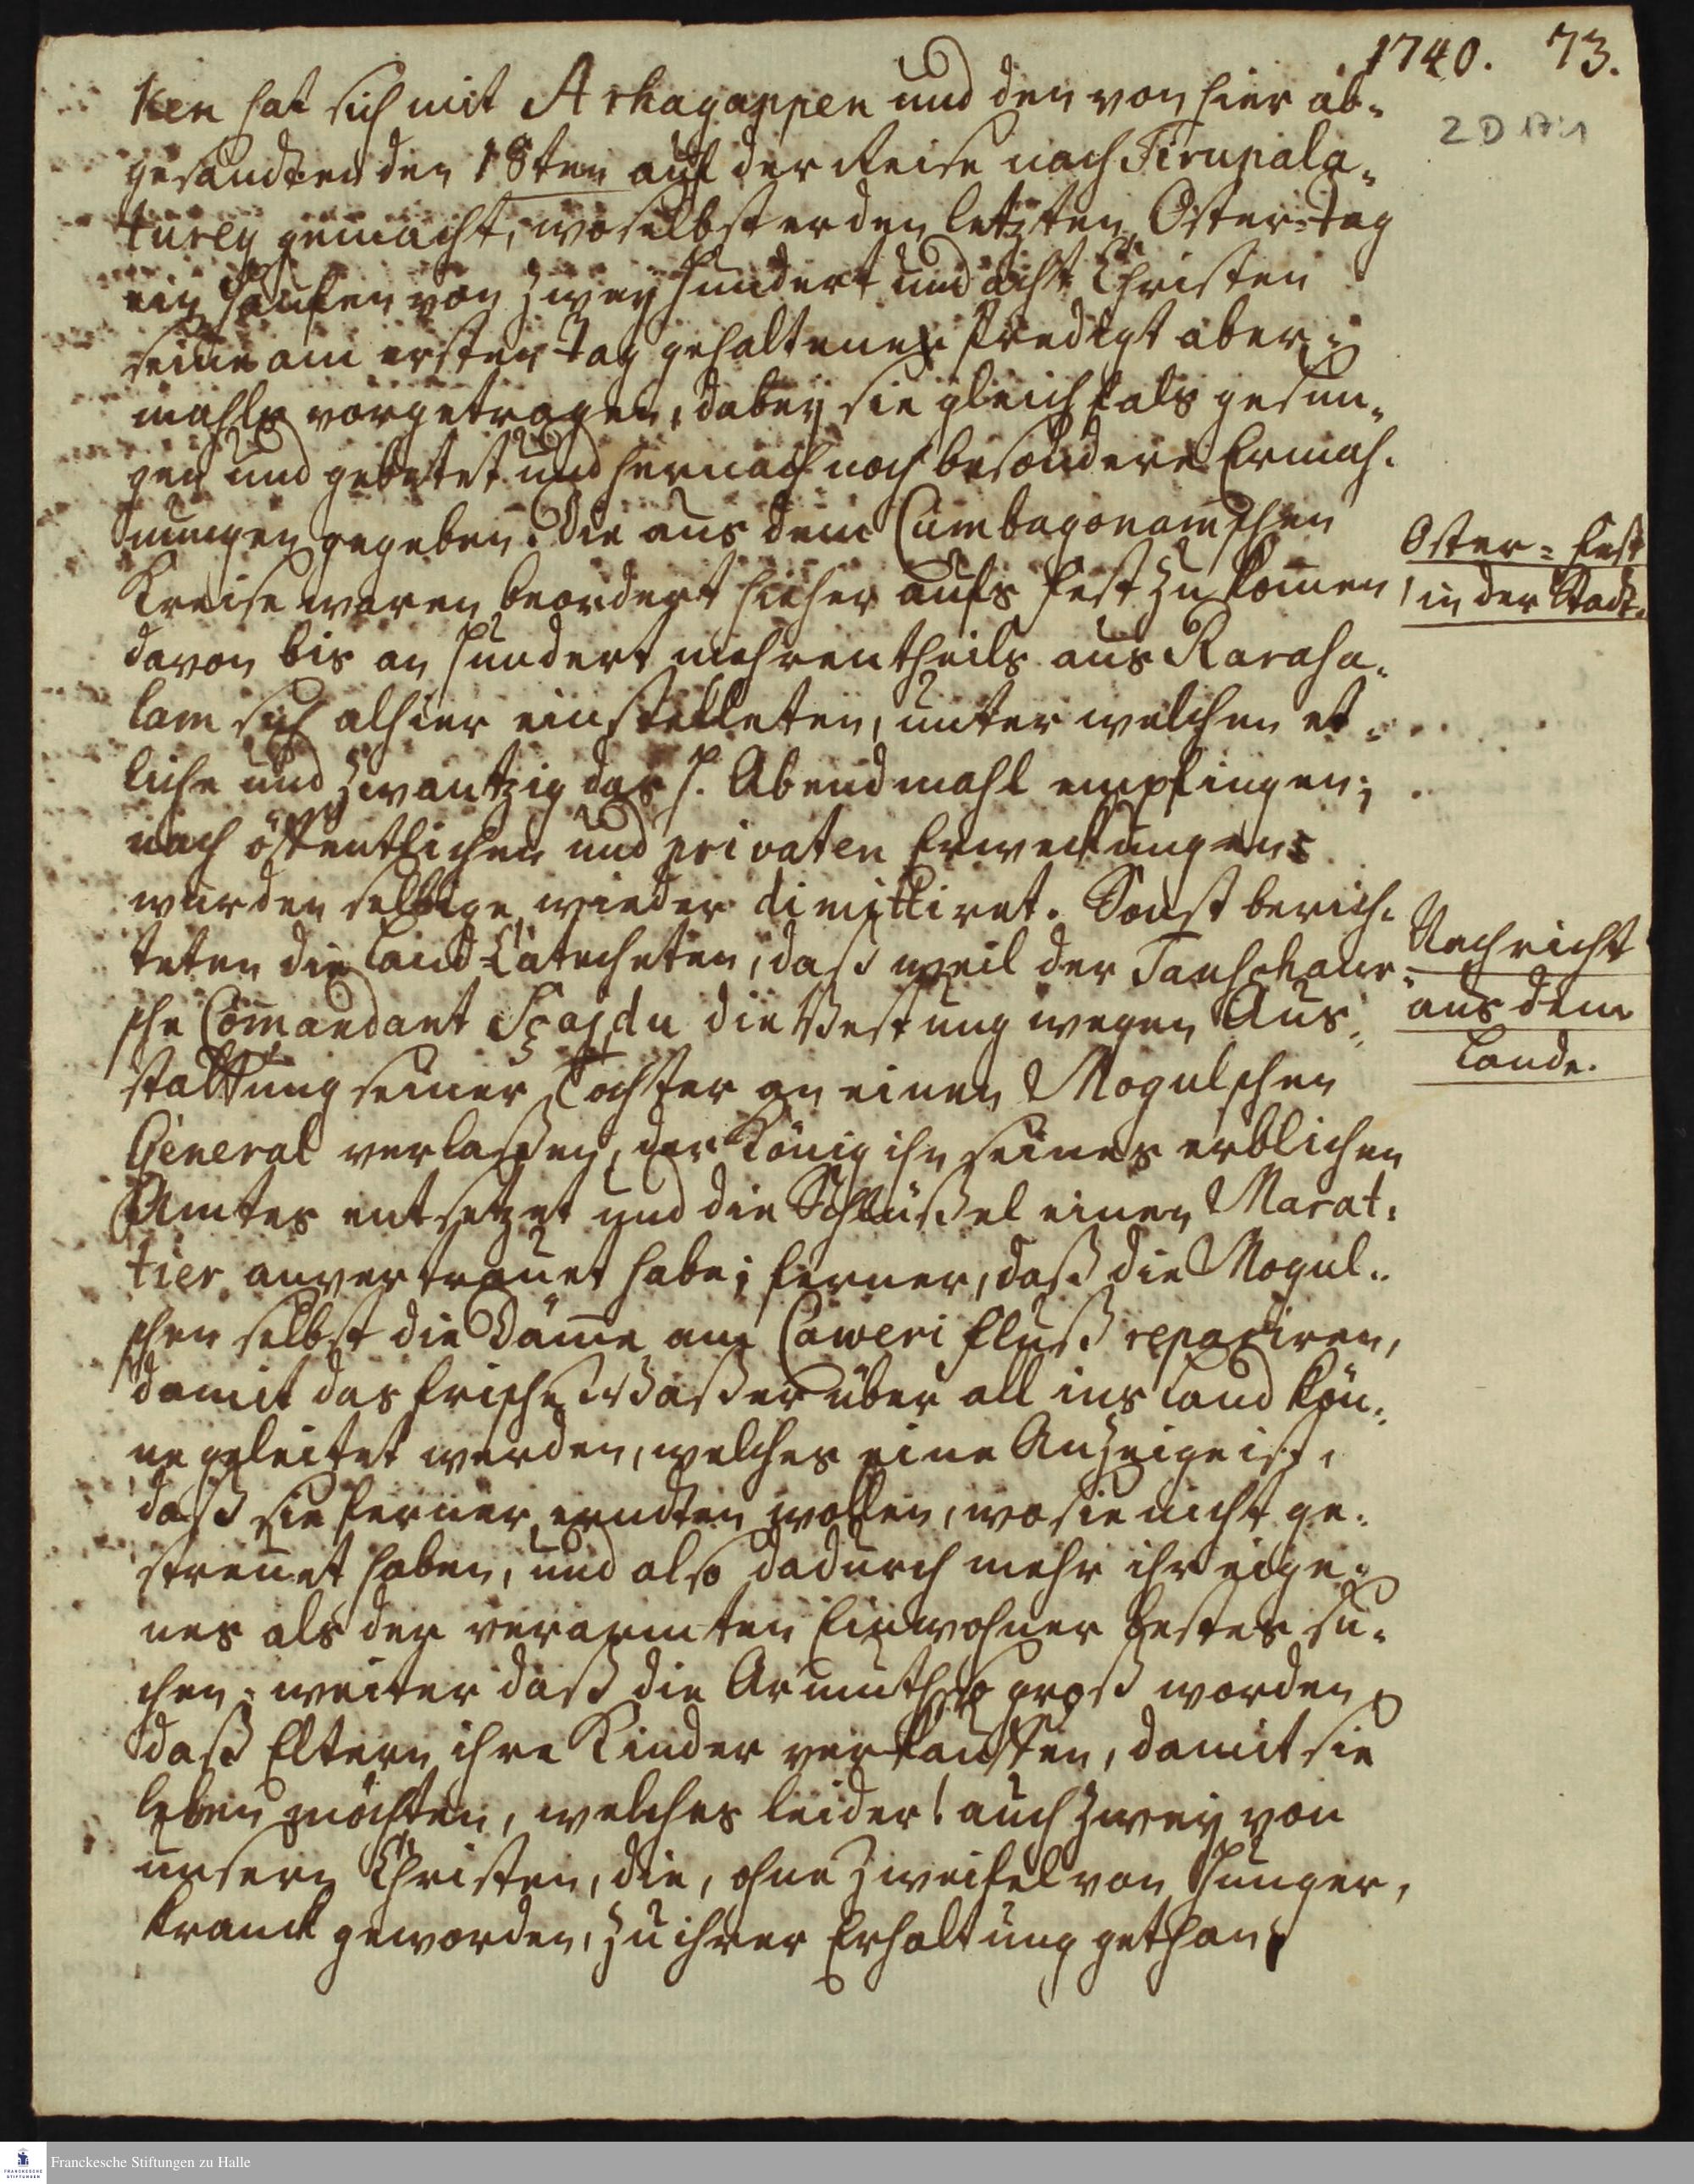 1740. 73.
2 D 17:1
ken hat sich mit Arhagappen und den von hier ab-
gesandten den 18ten auf der Reise nach Tirupala-
turey gemacht, woselbst er den letzten Oster-Tag
ein Haufen von zwey hundert und acht Christen
seine am ersten Tag gehaltene Predigt aber-
mahls vorgetragen, dabey sie gleichfals gesun-
gen und gebetet und hernach noch besondere Ermah-
nungen gegeben. Die aus dem Cumbagonamschen
Kreise waren beordert hieher aufs Fest zu komen,
davon bis an hundert mehrentheils aus Karaha-
lam sich alhier einstelleten, unter welchen et-
liche und zwantzig das h. Abendmahl empfingen;
nach öffentlichen und privaten Erweckungen
wurden selbige wieder dimittiret. Sonst berich-
teten die Land-Catecheten, daß weil der Tanschaur-
sche Comandant Seajdu die Vestung wegen Aus-
stattung seiner Tochter an einen Mogulschen
General verlaßen, der König ihn seines erblichen
Amtes entsetzet und die Schlüßel einen Marat-
tier anvertrauet habe; ferner, daß die Mogul-
schen selbst die Däme am Caweri Fluß repariren,
damit das frische Waßer über all ins Land kön-
ne geleitet werden, welches eine Anzeige ist,
daß sie ferner erndten wollen, wo sie nicht ge-
streuet haben, und also dadurch mehr ihr eige-
nes als der verarmten Einwohner bestes su-
chen; weiter daß die Armuth so groß worden,
daß Eltern ihre Kinder verkaufften, damit sie
leben möchten, welches leider! auch zwey von
unsern Christen, die, ohne Zweifel von Hunger,
kranck geworden, zu ihrer Erhaltung gethan
Oster-Fest
in der Stadt.
Nachricht
aus dem
Lande.
FRANCKESCHE
STIFTUNGEN
Franckesche Stiftungen zu Halle